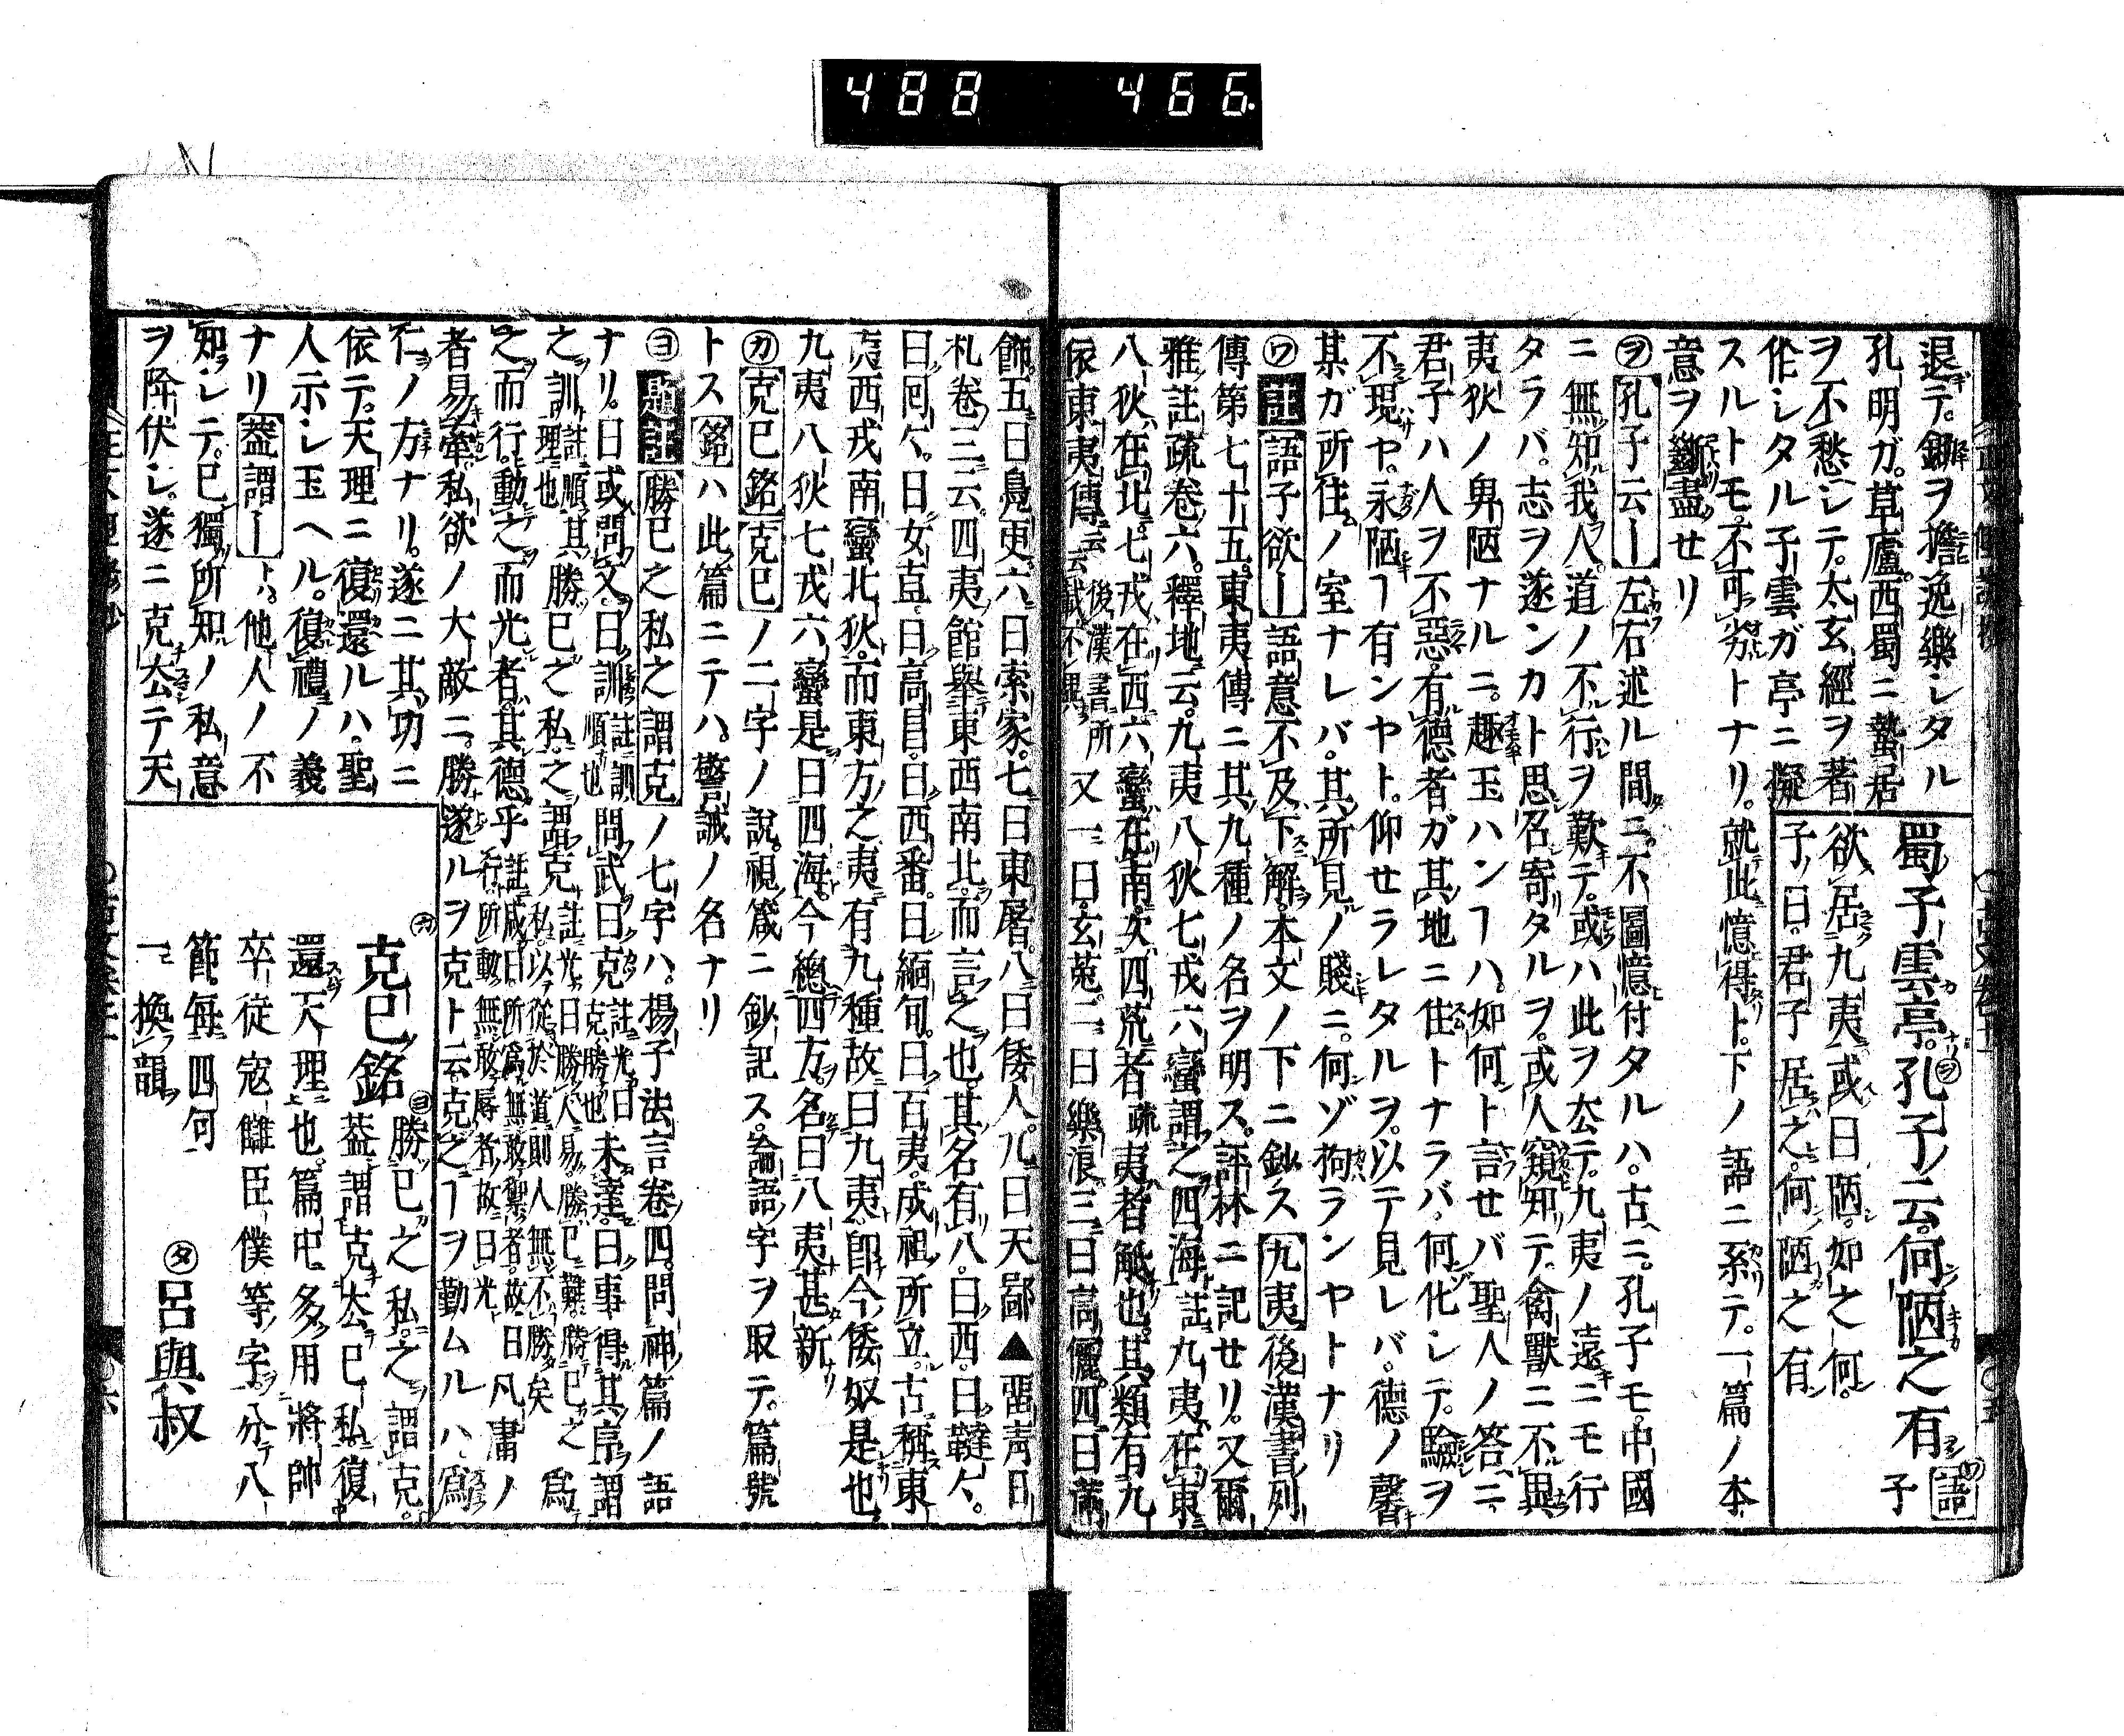 488 466.
退テ。鋤ヲ擔逸樂シタル
孔明ガ。草廬。西蜀ニ蟄居
ヲ不愁シテ。太玄經ヲ著
作シタル子雲ガ亭ニ擬
スルトモ。不可劣トナリ。就此憶得ト。下ノ語ニ系テ。一篇ノ本
意ヲ斷盡セリ
蜀子雲亭。孔子云。何陋之有
語子
欲居九夷。或曰陋。如之何。
子曰。君子居之。何陋之有
ヲ 孔子云― 左右述ル間ニ。不圖憶付タルハ。古ニ。孔子モ。中國
ニ無知我人。道ノ不行ヲ歎テ。或ハ此ヲ厺テ。九夷ノ遠ニモ行
タラバ。志ヲ遂ンカト思召寄タルヲ。或人窺知テ。禽獸ニ不異
夷狄ノ卑陋ナルニ。趣玉ハンヿハ。如何ト言セバ聖人ノ答ニ
君子ハ人ヲ不惡。有德者ガ其地ニ住トナラバ。何化シテ。驗ヲ
不現ヤ。永陋ヿ有ンヤト。仰セラレタルヲ。以テ見レバ。德ノ馨
其ガ所住ノ室ナレバ。其所見ノ賤ニ。何ゾ拘ランヤトナリ
ワ 註 語子欲― 語意不及下解。本文ノ下ニ鈔ス 九夷 後漢書列
傳第七十五。東夷傳ニ其九種ノ名ヲ明ス。評林ニ記セリ。又爾
雅註疏卷六。釋地云。九夷八狄七戎六蠻謂之四海。註九夷在東
八狄在北。七戎在西六蠻在南。次四荒者 疏夷者觝也。其類有九
依東夷傳云 後漢書所云賦不異 又一曰。玄菟。二曰樂浪三曰高儷。四曰滿
飾。五曰鳧更六曰索家。七曰東屠。八曰倭人。九曰天鄙▲畱青日
札卷三云。四夷館擧東西南北。而言之也。其名有八。曰西。曰韃〻。
曰囘〻。曰女直。曰高昌。曰西番。曰緬甸。曰百夷。成祖所立。古稱東
夷西戎南蠻北狄。而東方之夷有九種故曰九夷卽今倭奴是也
九夷八狄七戎六蠻是曰四海。今總四方。名曰八夷甚新
カ 克己銘 克己ノ二字ノ說。視箴ニ鈔記ス。論語ノ字ヲ取テ。篇號
トス 銘ハ此篇ニテハ。警誡ノ名ナリ
ヨ 題註 勝己之私之謂克ノ七字ハ。揚子法言卷四。問神篇ノ語
ナリ。曰或問文。曰訓 註訓順也 問武。曰克 註光曰克勝也 未達。曰事得其序謂
之訓 註順其理也 勝己之私之謂克 註光曰勝人易。勝己難勝己之私。以從於道則人無不勝矣 爲
之而行。動之而光者。其德乎 註咸曰所爲無敢禦者。故曰行。所動無敢辱者故曰光 凡庸ノ
者易牽私欲ノ大敵ニ。勝遂ルヲ克ト云。克之ヿヲ勤ムルハ爲
仁ノ方ナリ。遂ニ其功ニ
依テ。天理ニ復還ルハ。聖
人示シ玉ヘル。復禮ノ義
ナリ 葢謂―ト。他人ノ不
知シテ。己獨所知ノ私意
ヲ降伏シ。遂ニ克厺テ天
カ 克己銘 ヨ 勝己之私。之謂克。
葢謂克厺己私復
還天理也。篇中多用將帥
卒徒寇讎臣僕等字。分八
節。每四句
一換韻 タ 呂與叔